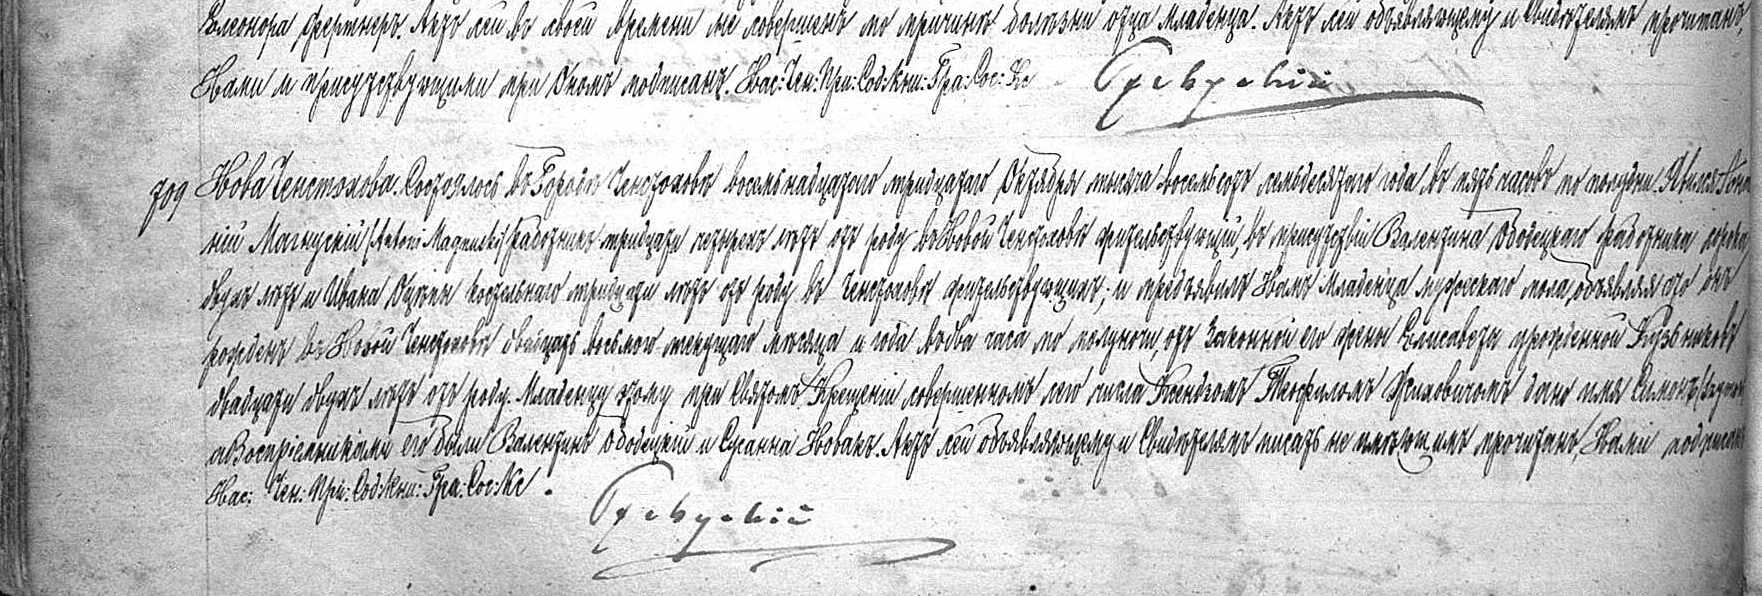 Элеонора Фертнер. Актъ сей въ своей времени не совершенъ по причинѣ болѣзни отца младенца. Актъ сей объявляющему и Свидѣтелямъ прочитанъ,
Нами и присутствующими при Ономъ подписанъ. Нас: Чен: При: Сод: Кни: Гра: Сос:
709 Нова Ченстохова. Состоялось въ Городѣ Ченстоховѣ восемьнадцатаго тридцатаго Октября тысяча восемьсотъ семьдесятаго года въ пять часовъ по полудни. Явился Анто
ній Магнускій (Antoni Magnuski) работникъ тридцати четырехъ лѣтъ отъ роду въ Новой Ченстоховѣ жительствующій, въ присутствіи Валентина Ободецкаго работника сорока
двухъ лѣтъ и Ивана костельнаго тридцати лѣтъ отъ роду въ Ченстоховѣ жительствующихъ; и предъявилъ Намъ Младенца мужескаго пола, объявляя что онъ
рожденъ въ Новой Ченстоховѣ двадцать восьмаго текущаго мѣсяца и года въ два часа по полуночи, отъ Законной его жены Елисаветы урожденной
двадцати двухъ лѣтъ отъ роду. Младенцу этому при Святомъ Крещеніи совершенномъ сего числа Ксендзомъ Теофиломъ дано имя Симонъ
а Воспріемниками его были Валентинъ Ободецкій и Сузанна Новакъ. Актъ сей Объявляющему и Свидѣтелямъ писать не умѣющимъ прочитанъ, Нами подписанъ
Нас: Чен: При: Сод: Кни: Гра: Сос: